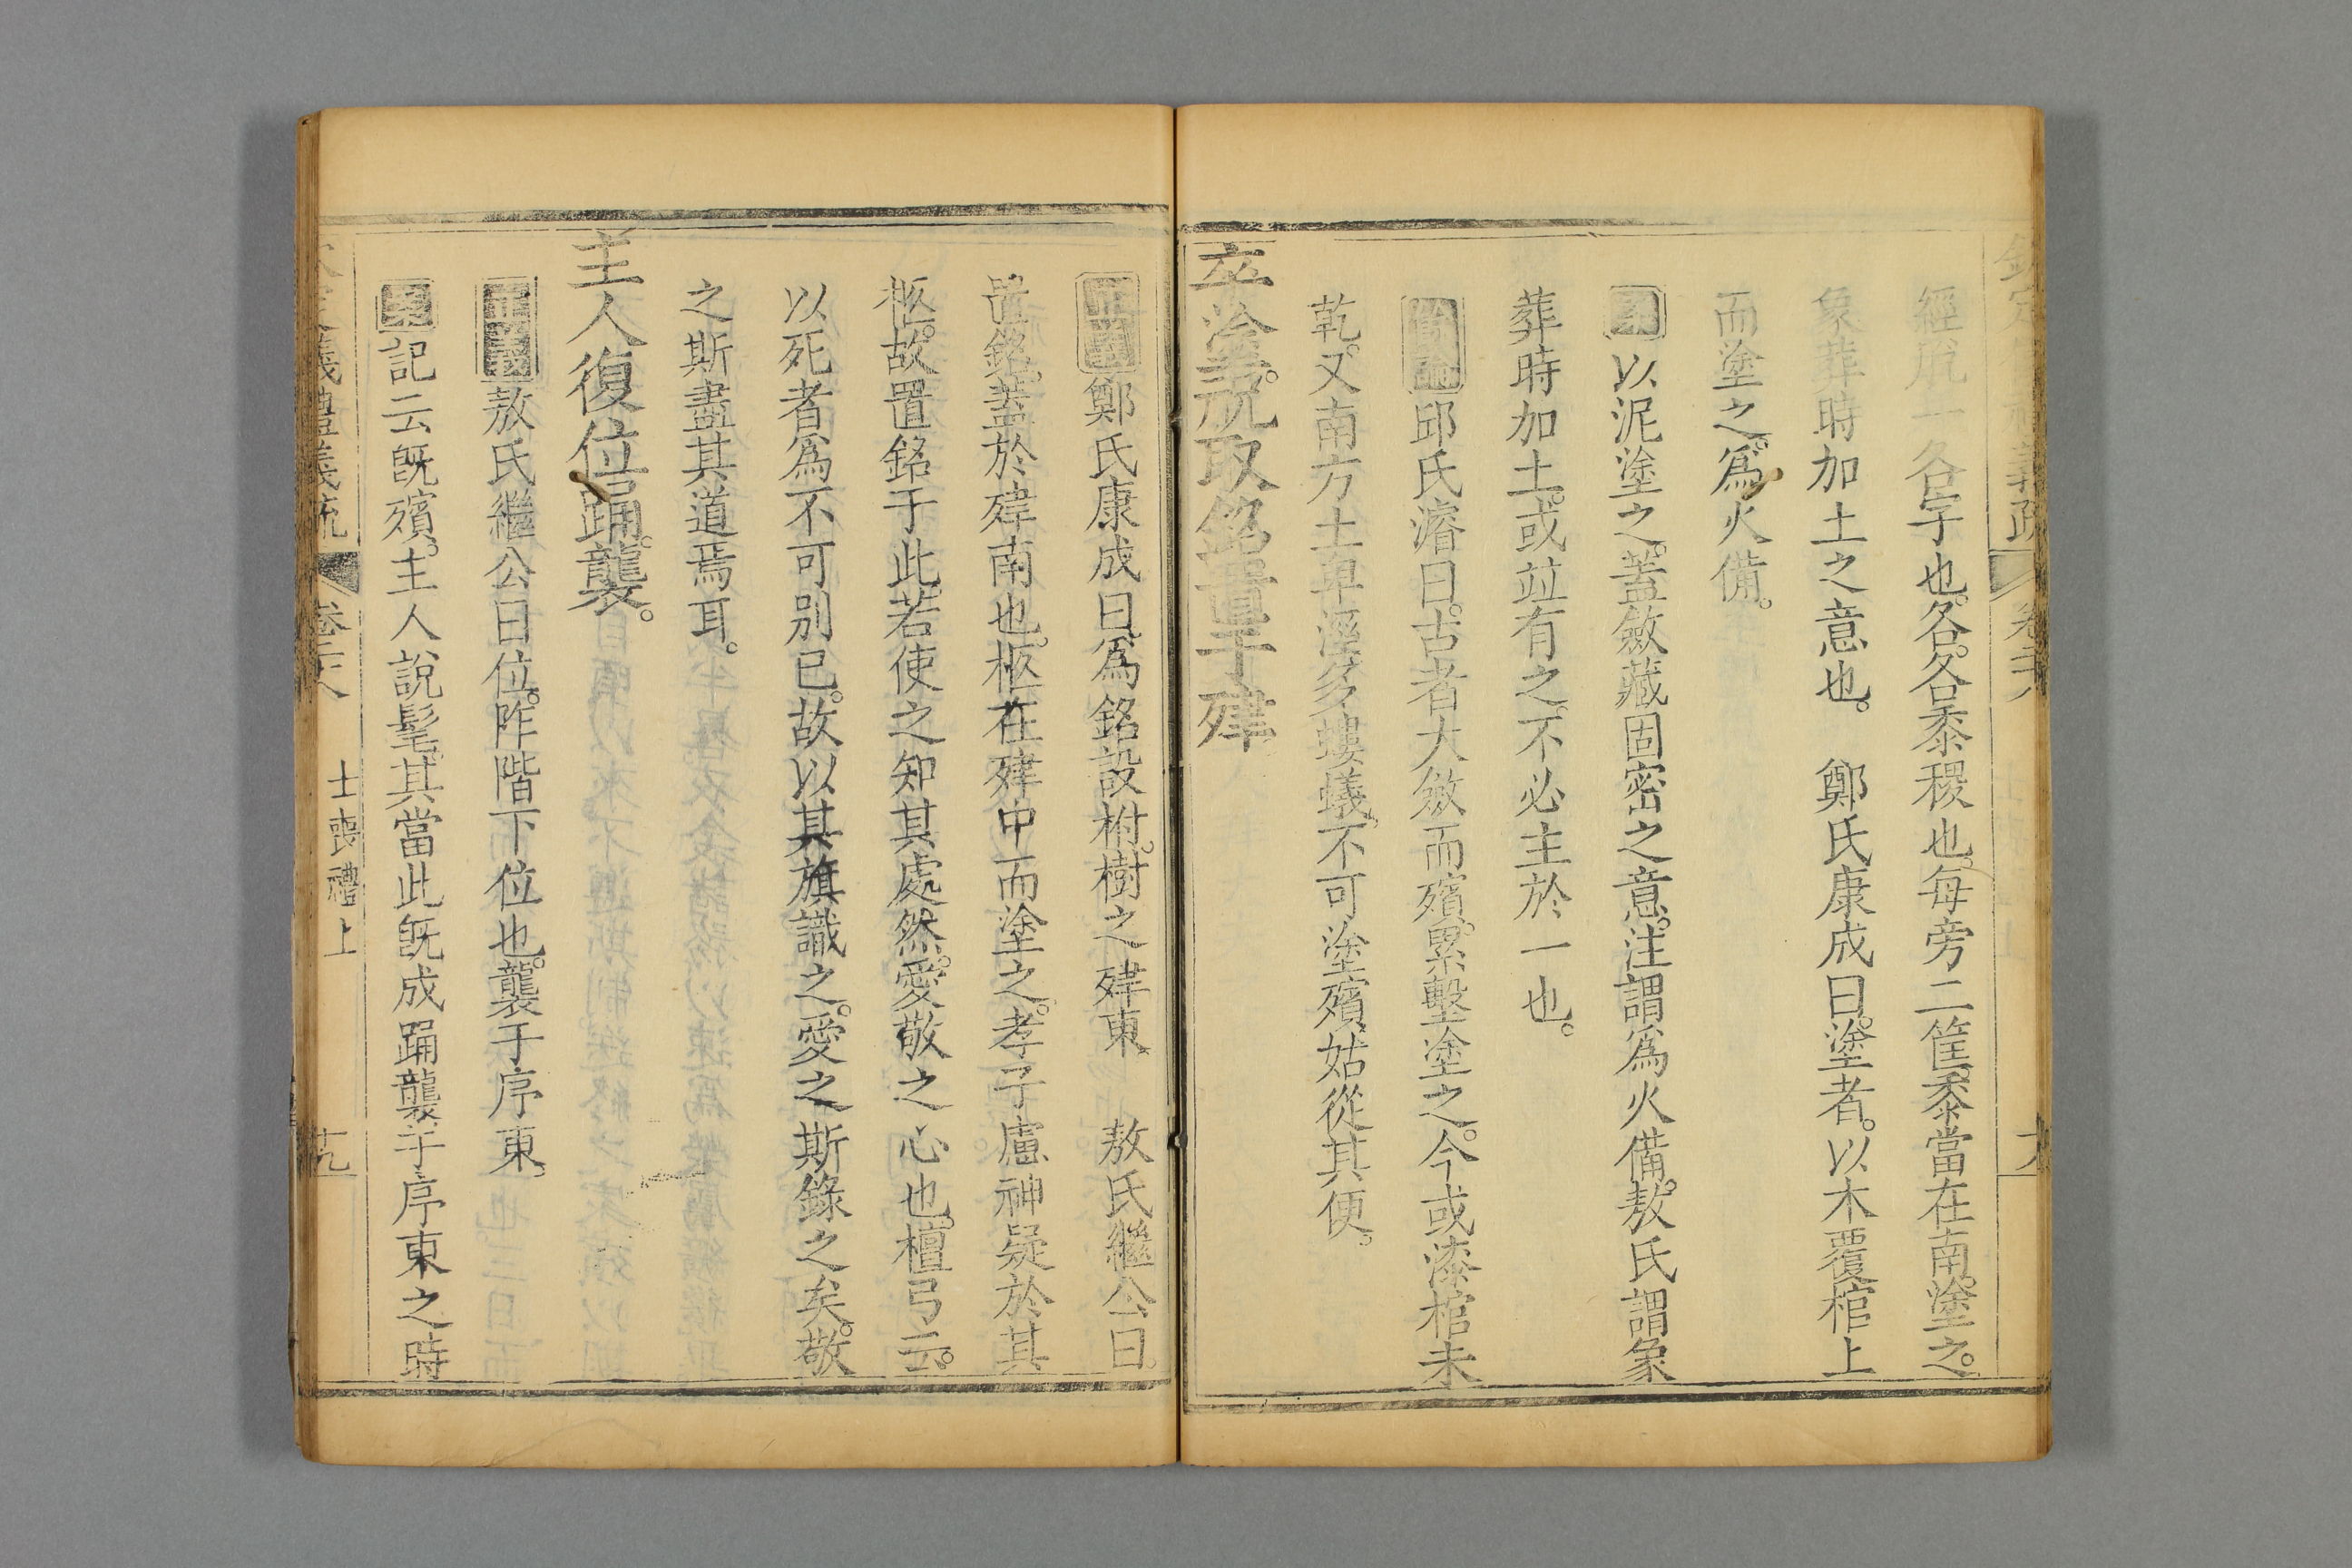 經脫一各字也各各黍稷也每旁二筐黍當在南塗之
象葬時加土之意也 鄭氏康成曰塗者以木覆棺上
而塗之爲火備
案以泥塗之蓋斂藏固密之意注謂爲火備敖氏謂象
葬時加土或竝有之不必主於一也
餘論邱氏濬曰古者大斂而殯累墼塗之今或漆棺未
乾又南方土卑溼多螻蟻不可塗殯姑從其便
卒塗祝取銘置于肂
正義鄭氏康成曰爲銘設柎樹之肂東 敖氏繼公曰
置銘蓋於肂南也柩在肂中而塗之孝子慮神疑於其
柩故置銘于此若使之知其處然愛敬之心也檀弓云
以死者爲不可别已故以其旗識之愛之斯錄之矣敬
之斯盡其道焉耳
主人復位踊襲
正義敖氏繼公曰位阼階下位也襲于序東
案記云旣殯主人說髦其當此旣成踊襲于序東之時
儀禮義疏 卷二十八 士喪禮上 十九